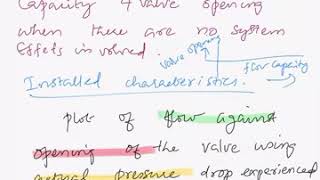 Capacity & valve opening
when these are no system
Effects involved.
valve opening
flow capacity
Installed characteristics.
plot of flow against
opening of the valve using
actual pressure drop experienced